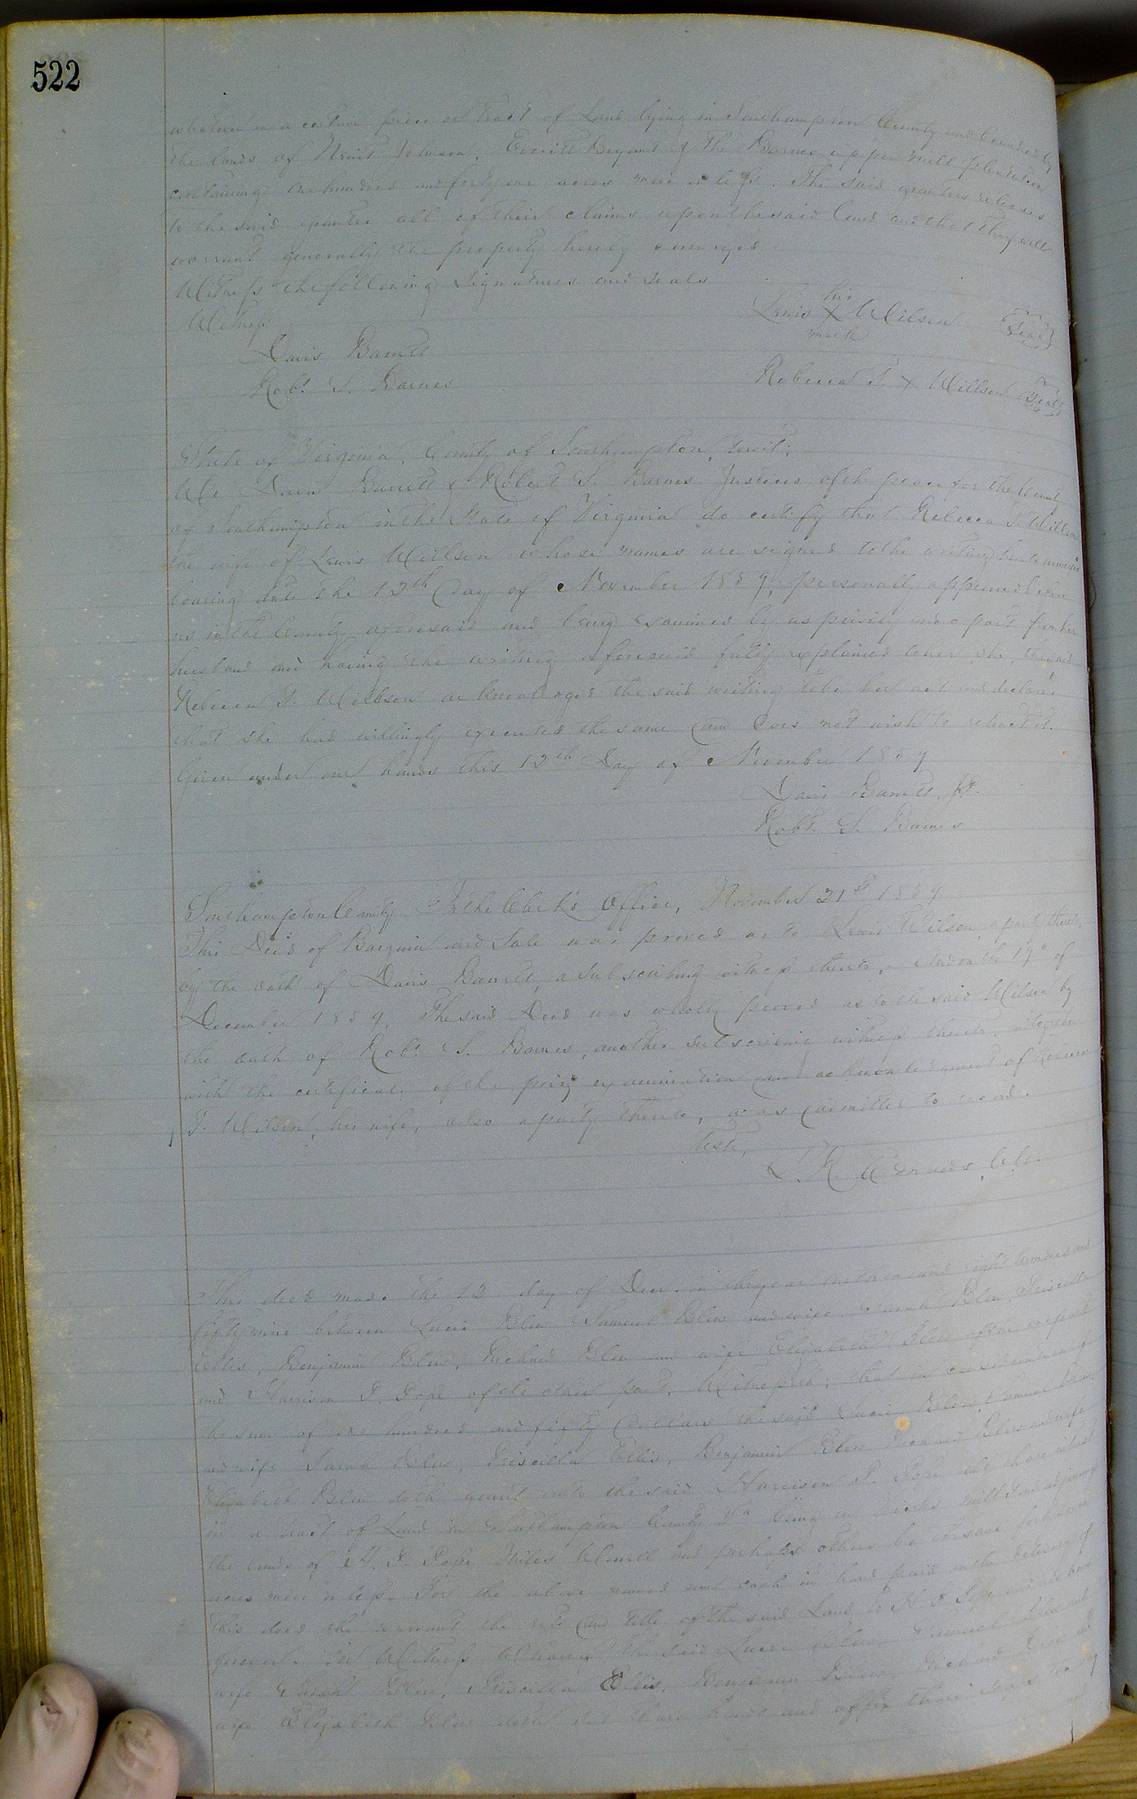 522
a certain piece or tract of Land lying in Southampton County and bounded by
the lands of Johnson, Everitt Bryant & the Barnes upper mill plantation
containing one hundred and forty one acres more or less. The said grantors releases
to the said grantee all of their claims upon the said land and that they will
warrant generally the property hereby conveyed
Witness the following Signatures and seals
Witness
Lewis his X mark Wilson {Seal}
Davis Barrett
Robt. S. Barnes
Rebecca T. X Willson {Seal}
State of Virginia, County of Southampton, towit:
We Davis Barrett & Robert S. Barnes Justices of the peace for the County
of Southampton in the State of Virginia do certify that Rebecca T. Willson
the wife of Lewis Willson whose names are signed to the writing hereto annexed
bearing date the 12th Day of November 1859, personally appeared before
us in the County aforesaid and being examined by us privily and apart from her
husband and having the writing aforesaid fully explained to her, she, the said
Rebecca T. Willson acknowledged the said writing to be her act and declared
that she had willingly executed the same and does not wish to retract it.
Given under our hands this 12th Day of November 1859
Davis Barrett, J.P.
Robt. S. Barnes
Southampton County In the Clerk's Office, November 21st 1859
This Deed of Bargain and Sale was proved as to Lewis Wilson a party thereto,
by the oath of Davis Barrett, a subscribing witness thereto, And on the 19th of
December 1859, The said Deed was wholly proved as to the said Wilson by
the oath of Robt. S. Barnes, another subscribing witness thereto, and together
with the certificate of the privy examination and acknowledgment of Rebecca
T. Wilson, his wife, also a party thereto, was admitted to record.
Teste,
L. R. Edwards, C.C.
This deed made the 12 day of Decr. in the year one thousand eight hundred and
fifty nine between Blow Samuel Blow and wife Sarah Blow, Priscilla
Ellis, Benjamin Blow, Richard Blow and wife Elizabeth Blow of the one part
and Harrison P. Pope of the other part, Witnesseth: that in consideration of
the sum of one hundred and fifty dollars the said Blow, Samuel Blow
and wife Sarah Blow, Priscilla Ellis, Benjamin Blow Richard Blow and wife
Elizabeth Blow doth grant unto the said Harrison P. Pope all their interest
in a tract of Land in Southampton County Va. lying
the lands of H. P. Pope, Miles and perhaps others be
acres more or less. For the above named sum cash in hand paid at the delivery of
this deed the title of the said Land to H. P. Pope and his heirs
forever. In Witness Whereof the said Blow Samuel Blow and
wife Sarah Blow, Priscilla Ellis, Benjamin Blow, Richard Blow and
wife Elizabeth Blow doth set their hands and affix their